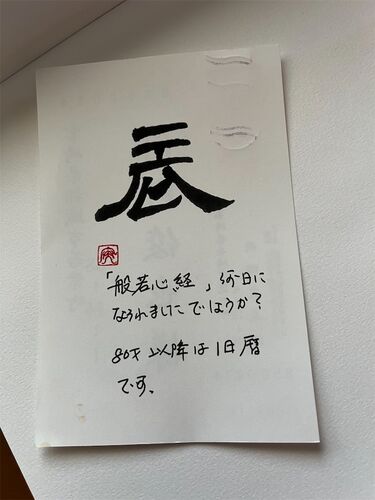 辰
「般若心経」何日に
なられましたでしょうか?
80才以降は旧暦
です。